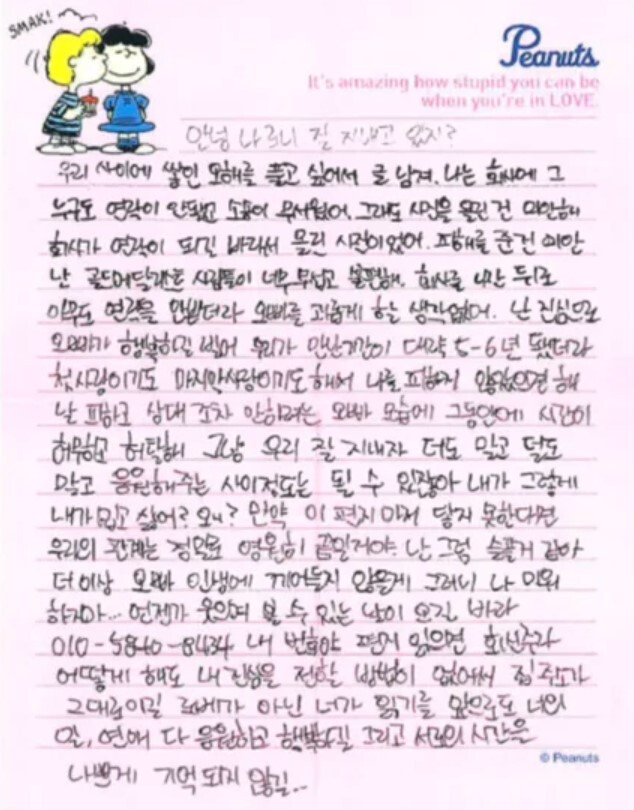 SMAK!
Peanuts
It's amazing how stupid you can be
when you're in LOVE.
안녕 나 잘 지내고 있지?
우리 사이에 쌓인 오해를 풀고 싶어서 글 남겨. 나는 회사에 그
누구도 연락이 안됐고 소송이 무서웠어. 그래도 사진을 올린 건 미안해
회사가 연락이 되길 바라서 올린 사진이었어. 피해를 준건 미안
난 골드메달리스트 사람들이 너무 무섭고 불편해. 회사를 나간 뒤로
아무도 연락을 안받더라 오빠를 괴롭게 하는 생각없어. 난 진심으로
오빠가 행복하길 빌어 우리가 만난기간이 대략 5-6년 됐더라
첫사랑이기도 마지막사랑이기도 해서 나를 피하지 않았으면 해
날 피하고 상대 조차 안하려는 오빠 모습에 그동안에 시간이
허무하고 허탈해 그냥 우리 잘 지내자 더도 말고 덜도
말고 응원해주는 사이정도는 될 수 있잖아 내가 그렇게
내가 밉고 싫어? 왜? 만약 이 편지 마저 닿지 못한다면
우리의 관계는 정말로 영원히 끝일거야. 난 그럼 슬플거 같아
더 이상 오빠 인생에 끼어들지 않을게 그러니 나 미워
하지마... 언젠가 웃으며 볼 수 있는 날이 오길 바라
010-5840-8434 내 번호야 편지 읽으면 회신주라
어떻게 해도 내 진심을 전할 방법이 없어서 집주소가
그대로이길 로베가 아닌 너가 읽기를 앞으로도 너의
일, 연애 다 응원하고 행복하길 그리고 서로의 시간은
나쁘게 기억 되지 않길...
© Peanuts